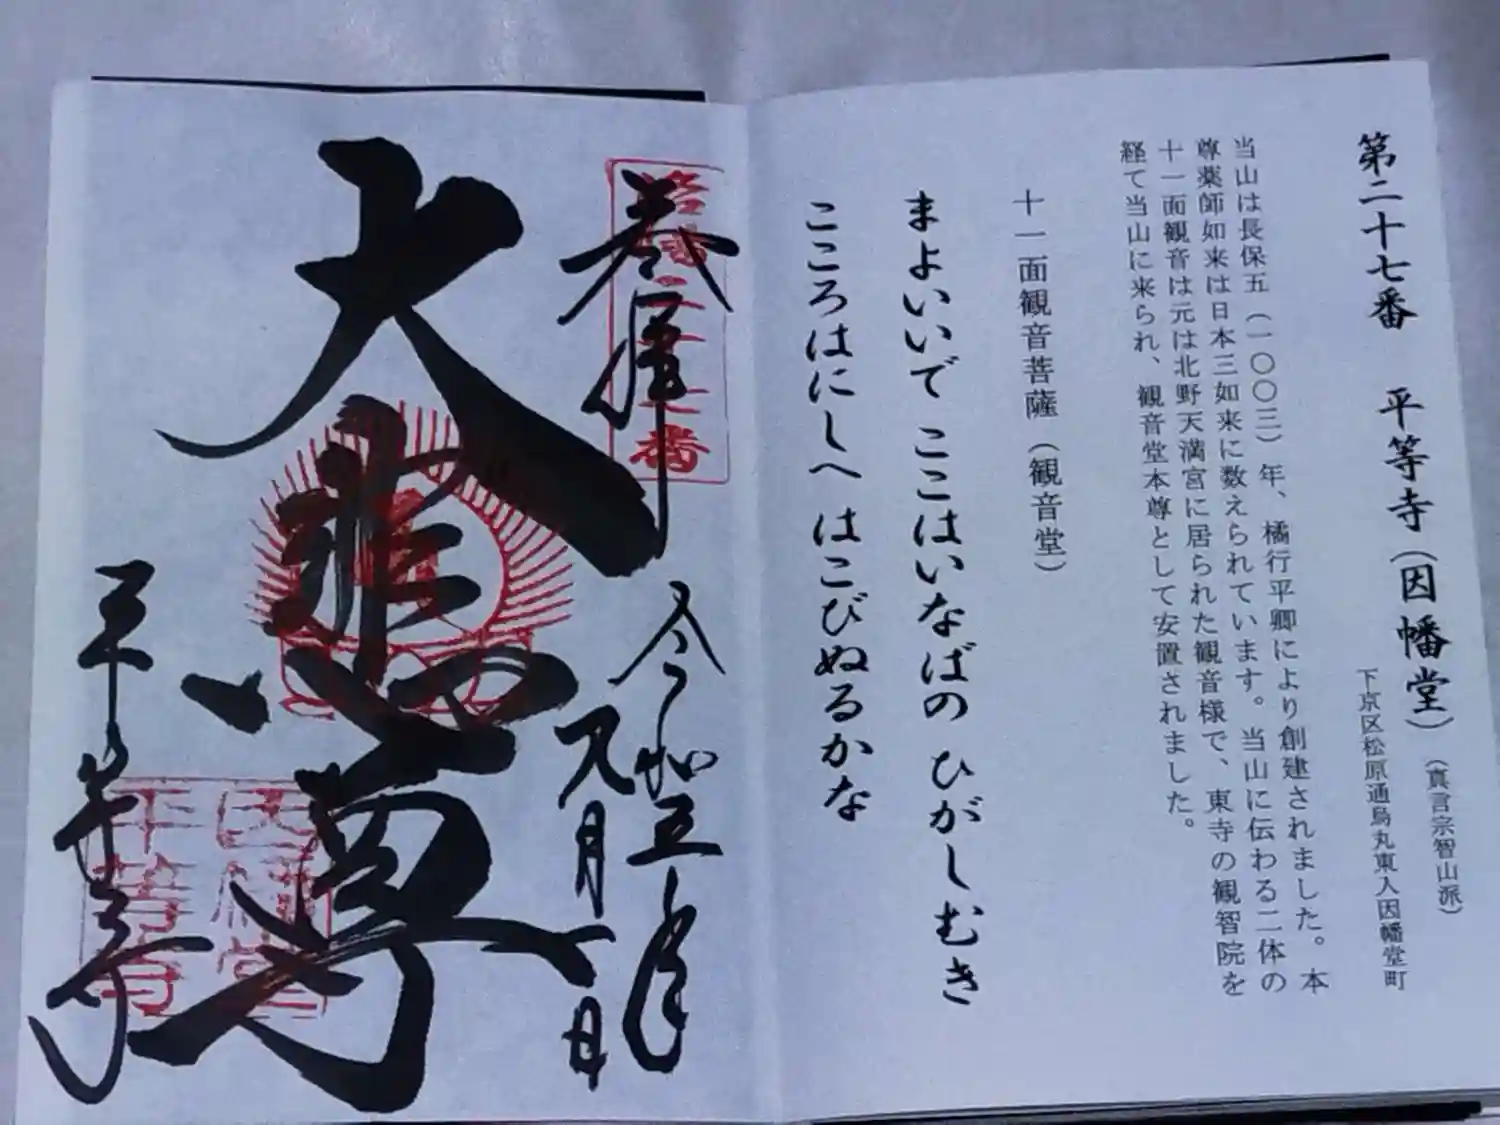 第二十七番 平等寺(因幡堂)(真言宗智山派)
下京区松原通烏丸東入因幡堂町
当山は長保五(一〇〇三)年、橘行平卿により創建されました。本
尊薬師如来は日本三如来に数えられています。当山に伝わる二体の
十一面観音は元は北野天満宮に居られた観音様で、東寺の観智院を
経て当山に来られ、観音堂本尊として安置されました。
十一面観音菩薩(観音堂)
まよいいで ここはいなばの ひがしむき
こころはにしへ はこびぬるかな
奉拝
洛陽二十七番
令和五年
九月
日
大悲尊
平等寺
因幡堂
平等寺